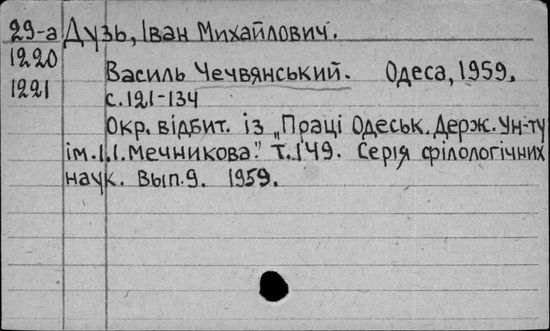 29-а Дузь, Іван Михайлович.
1220
1221 Василь Чечвянський. Одеса, 1959.
с. 121-134
Окр. відбит. із „Праці Одеськ. Держ. Ун-ту
ім. І.І. Мечникова." Т. 149. Серія філологічних
наук. Вып. 9. 1959.